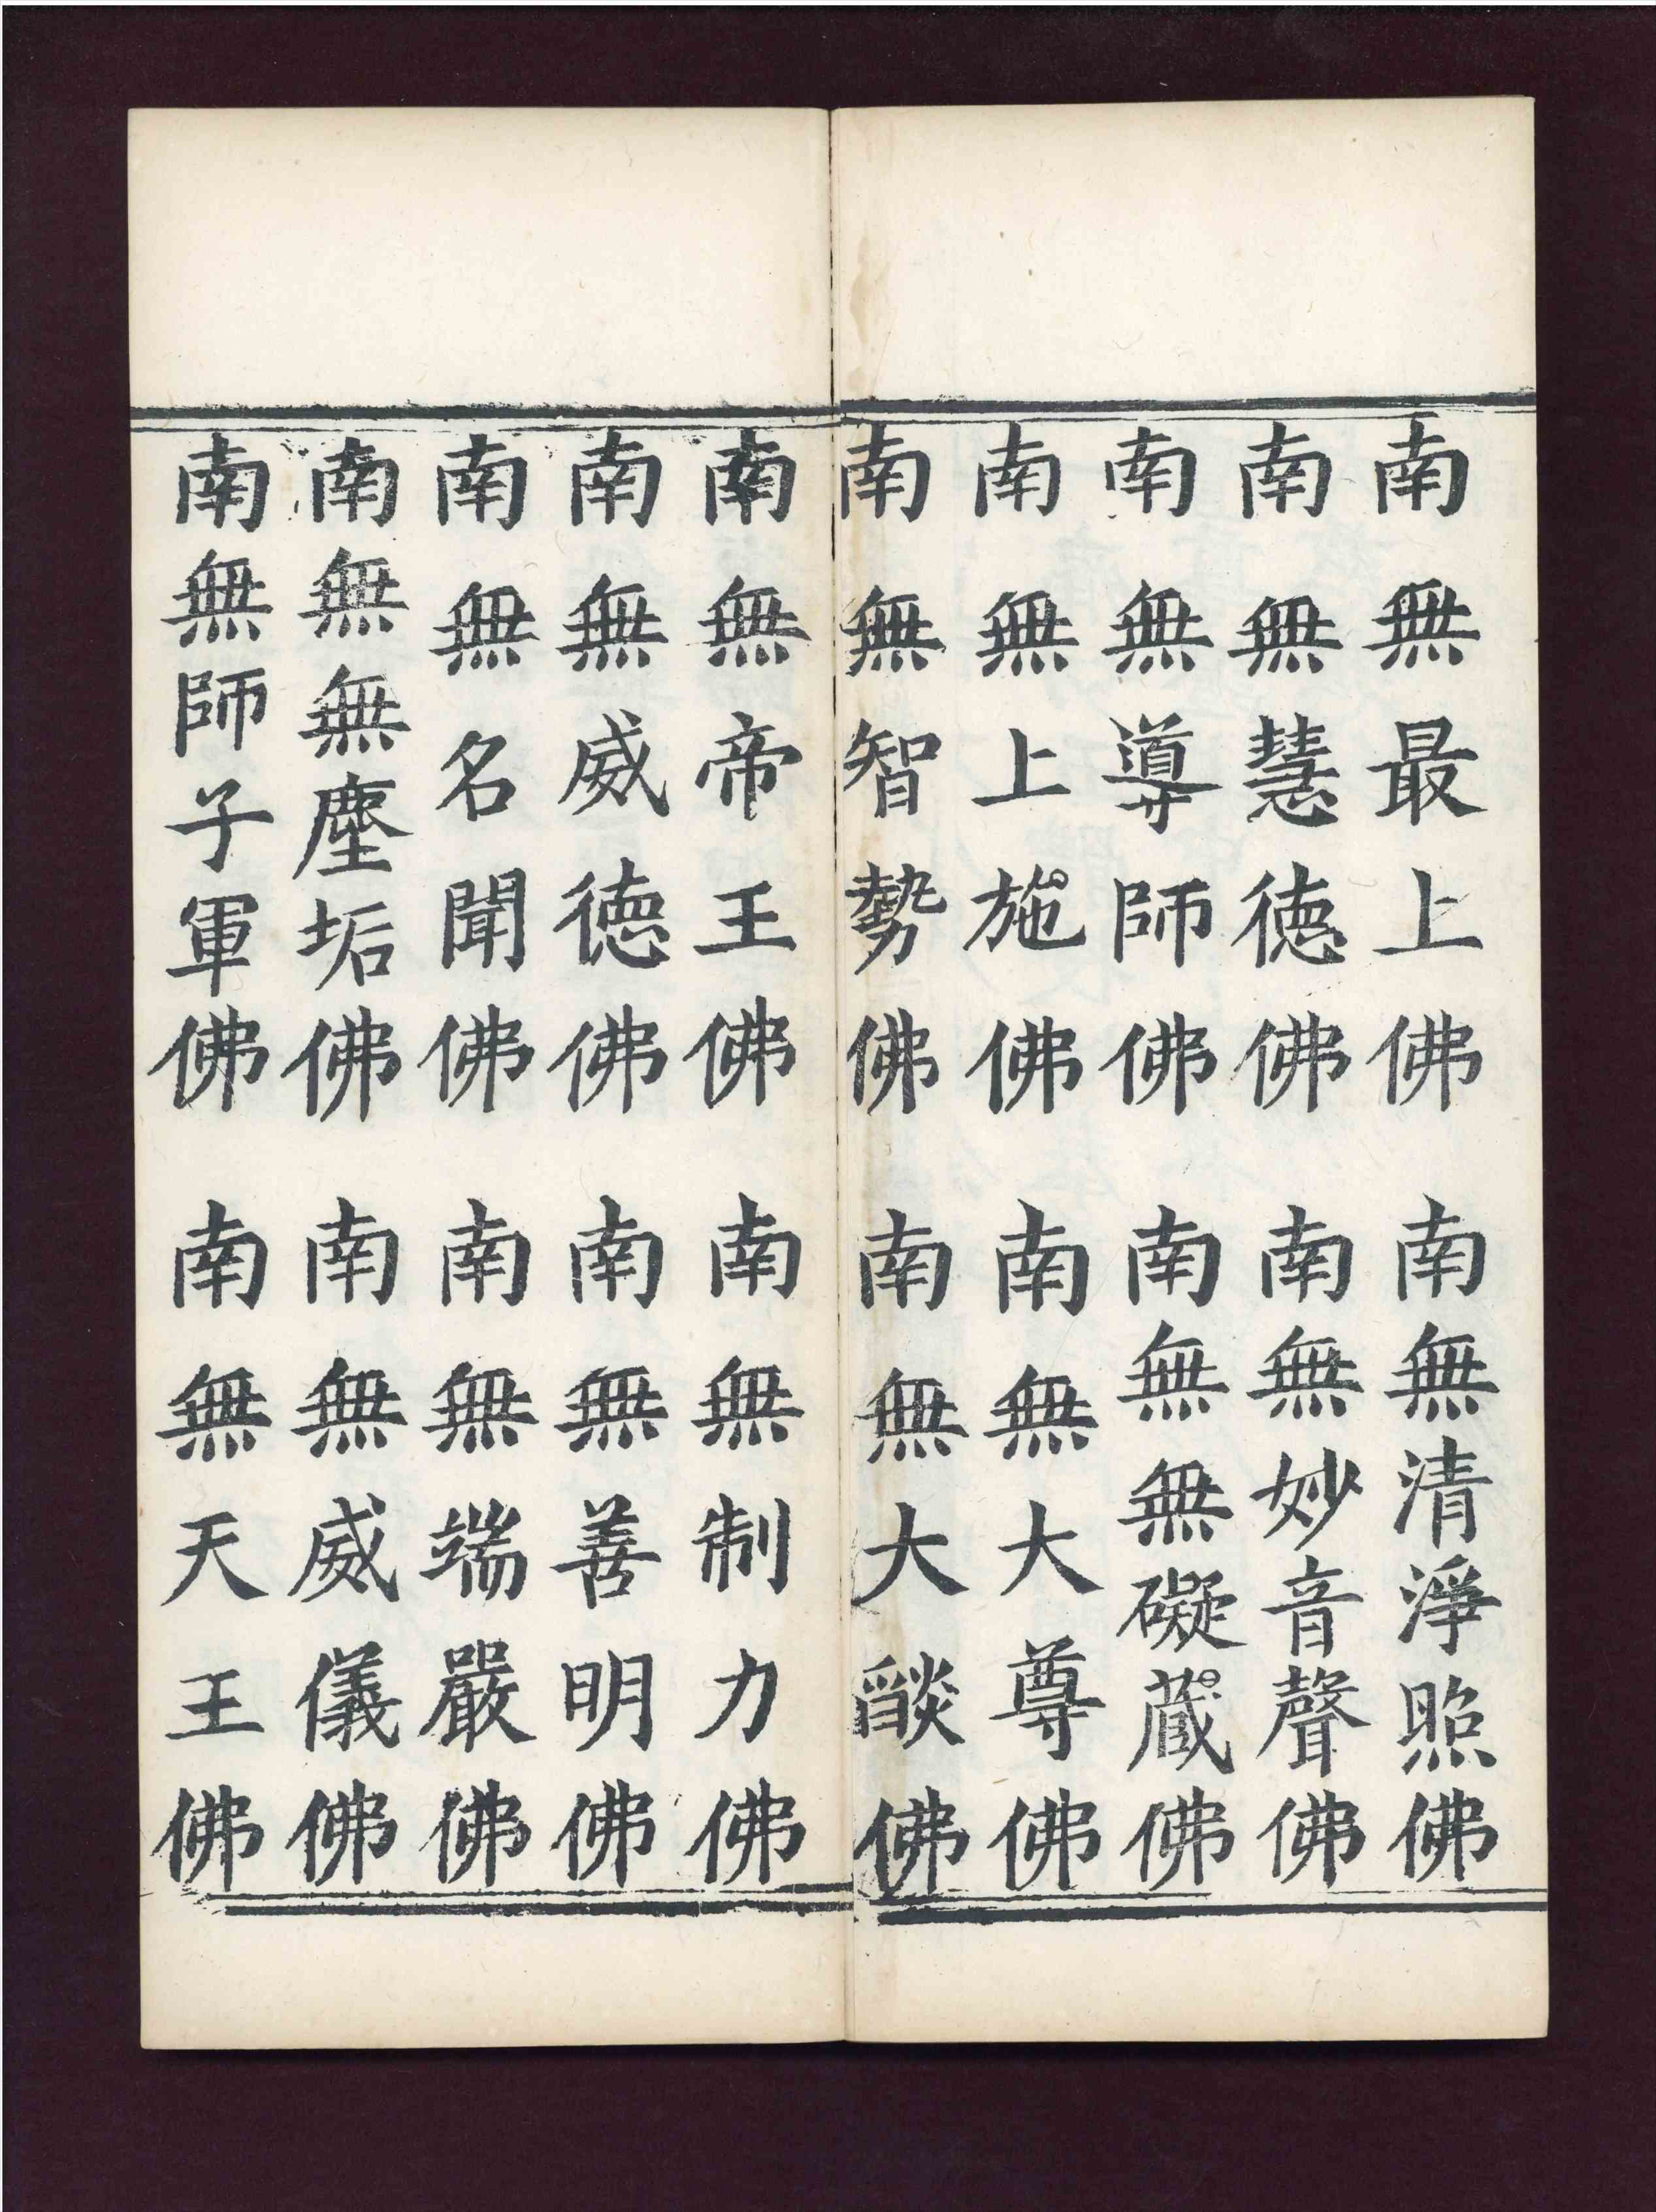 南無最上佛 南無清淨照佛
南無慧德佛 南無妙音聲佛
南無導師佛 南無無礙藏佛
南無上施佛 南無大尊佛
南無智勢佛 南無大燄佛
南無帝王佛 南無制力佛
南無威德佛 南無善明佛
南無名聞佛 南無端嚴佛
南無無塵垢佛 南無威儀佛
南無師子軍佛 南無天王佛